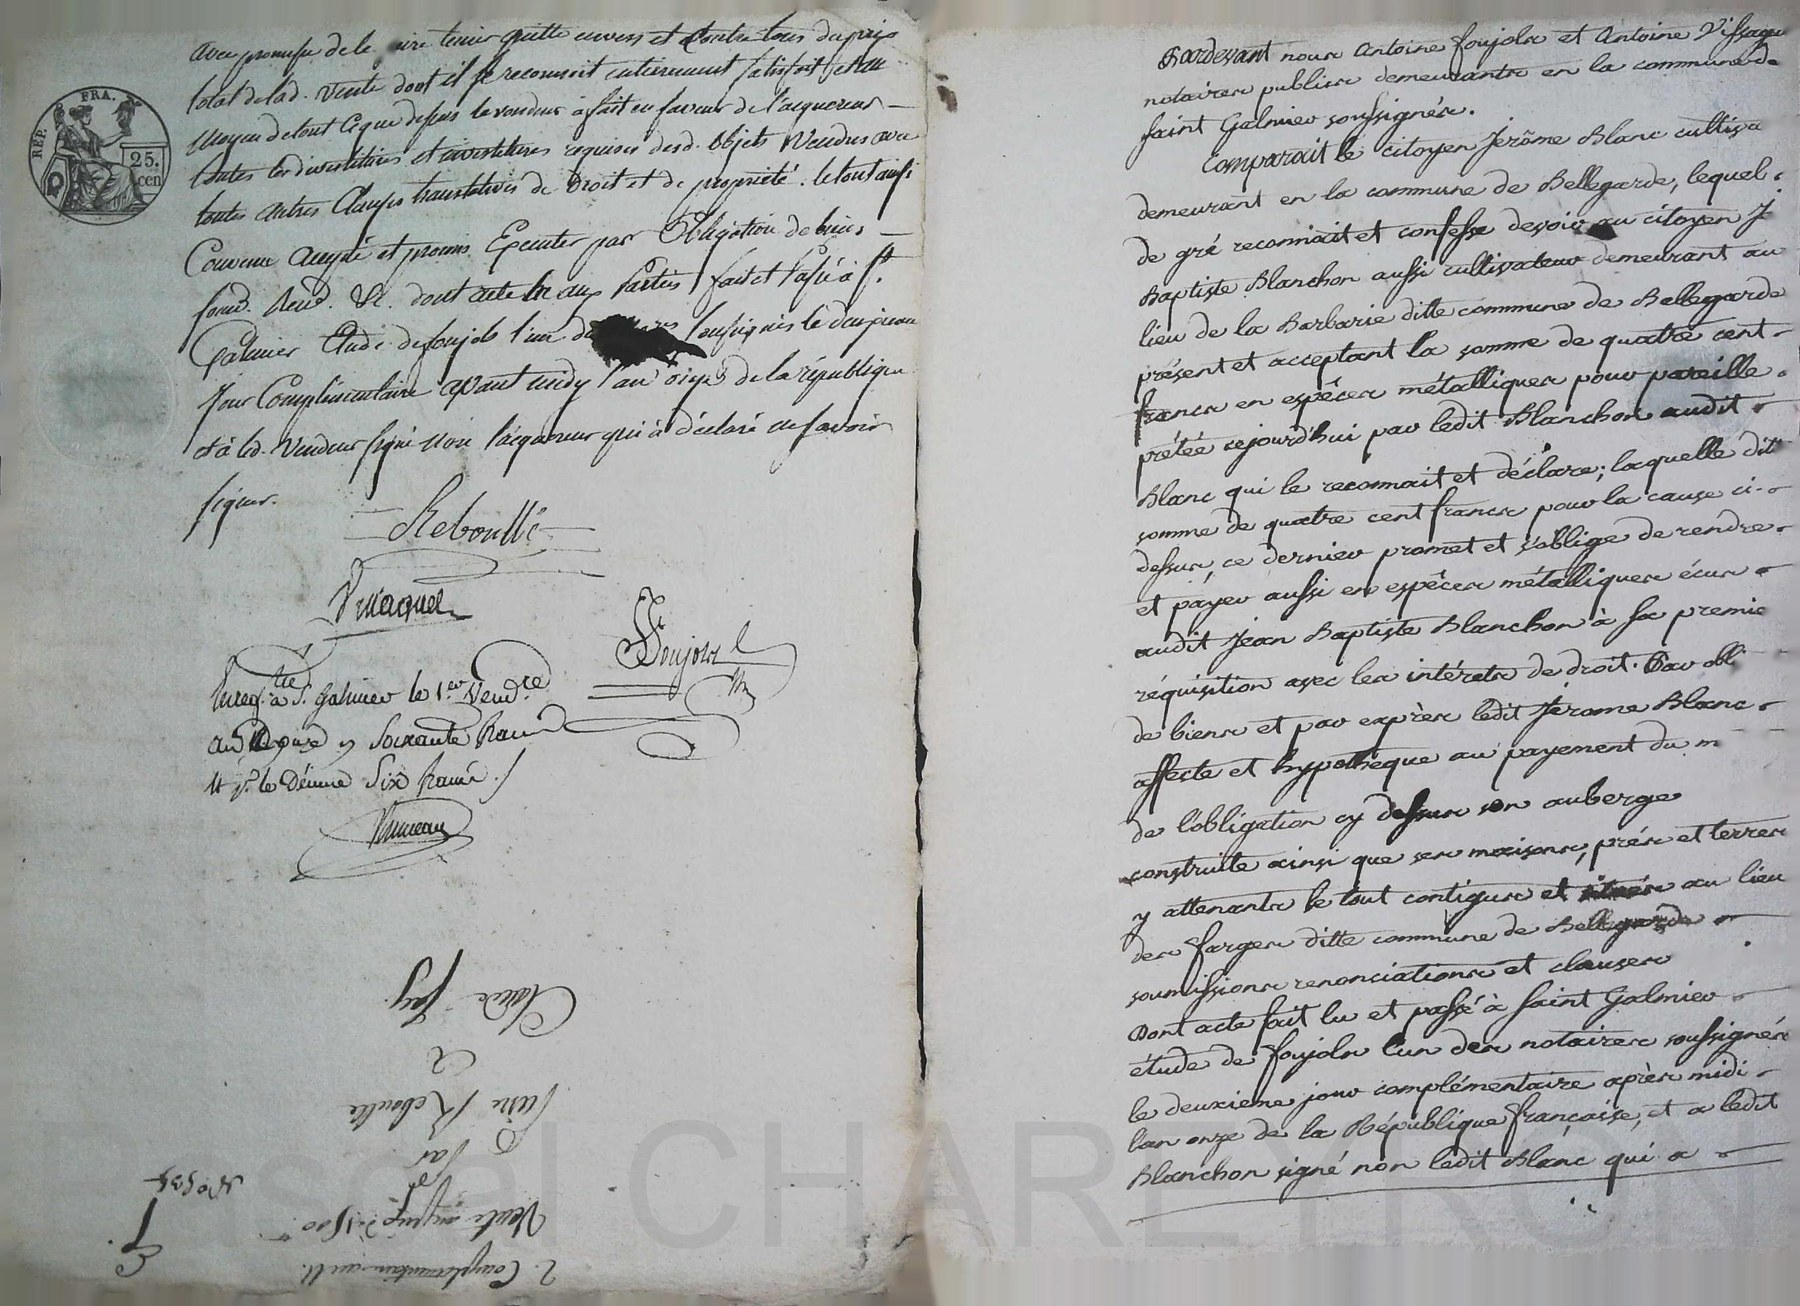 avec promesse de le faire tenir quitte envers et contre tous du prix
total de lad. vente dont il se reconnoit entierement satisfait et au
moyen de tout ce que dessus le vendeur a fait en faveur de l'acquereur —
toutes les divestitures et investitures requises desd. objets vendus avec
toutes autres clauses translatives de droit et de propriété. le tout ainsi
Convenu accepté et promis Executer par obligation de biens —
soumis. renon. &c. dont acte lu aux parties fait et passé à St.
Galmier Etude de foujols l'un des soussignés le deuxieme
jour Complémentaire avant midy l'an onze de la république
et a led. Vendeur signé non l'acquereur qui a déclaré ne savoir
signer.
Reboulle
Vissaguet
Foujols
Enreg.tré à St. Galmier le 1.er Vend.re
an Douze Soixante francs
et pr. le Décime Six francs
REP. FRA.
25. cen
Claude Fay
a
Pierre Reboulle
Par
Vente au prix de 1500
2. Complementaire an 11.
N° 535
Pardevant nous Antoine foujols et Antoine Vissaguet
notaires publics demeurants en la commune de
Saint Galmier soussignés.
Comparait le citoyen Jerôme Blanc cultiva
demeurant en la commune de Bellegarde, lequel
de gré reconnait et confesse devoir au citoyen J
Baptiste Blanchon aussi cultivateur demeurant au
lieu de la Barbarie ditte commune de Bellegarde
présent et acceptant la somme de quatre cent
francs en espéces métalliques pour pareille
prêtée cejourd'hui par ledit Blanchon audit
Blanc qui le reconnait et déclare; laquelle dit
somme de quatre cent francs pour la cause ci-
dessus, ce dernier promet et s'oblige de rendre
et payer aussi en espéces métalliques écus
audit Jean Baptiste Blanchon à sa premie
réquisition avec les intérêts de droit. Par obli
de biens et par exprès ledit Jérome Blanc
affecte et hypothéque au payement du m
de l'obligation cy dessus son auberge
construite ainsi que ses maisons, prés et terres
y attenants le tout contigus et situés au lieu
des farges ditte commune de Bellegarde
soumissions renonciations et clauses
Dont acte fait lu et passé à Saint Galmier
étude de foujols l'un des notaires soussignés
le deuxieme jour complémentaire après midi
l'an onze de la République française, et a ledit
Blanchon signé non ledit Blanc qui a
Pascal CHAREYRON